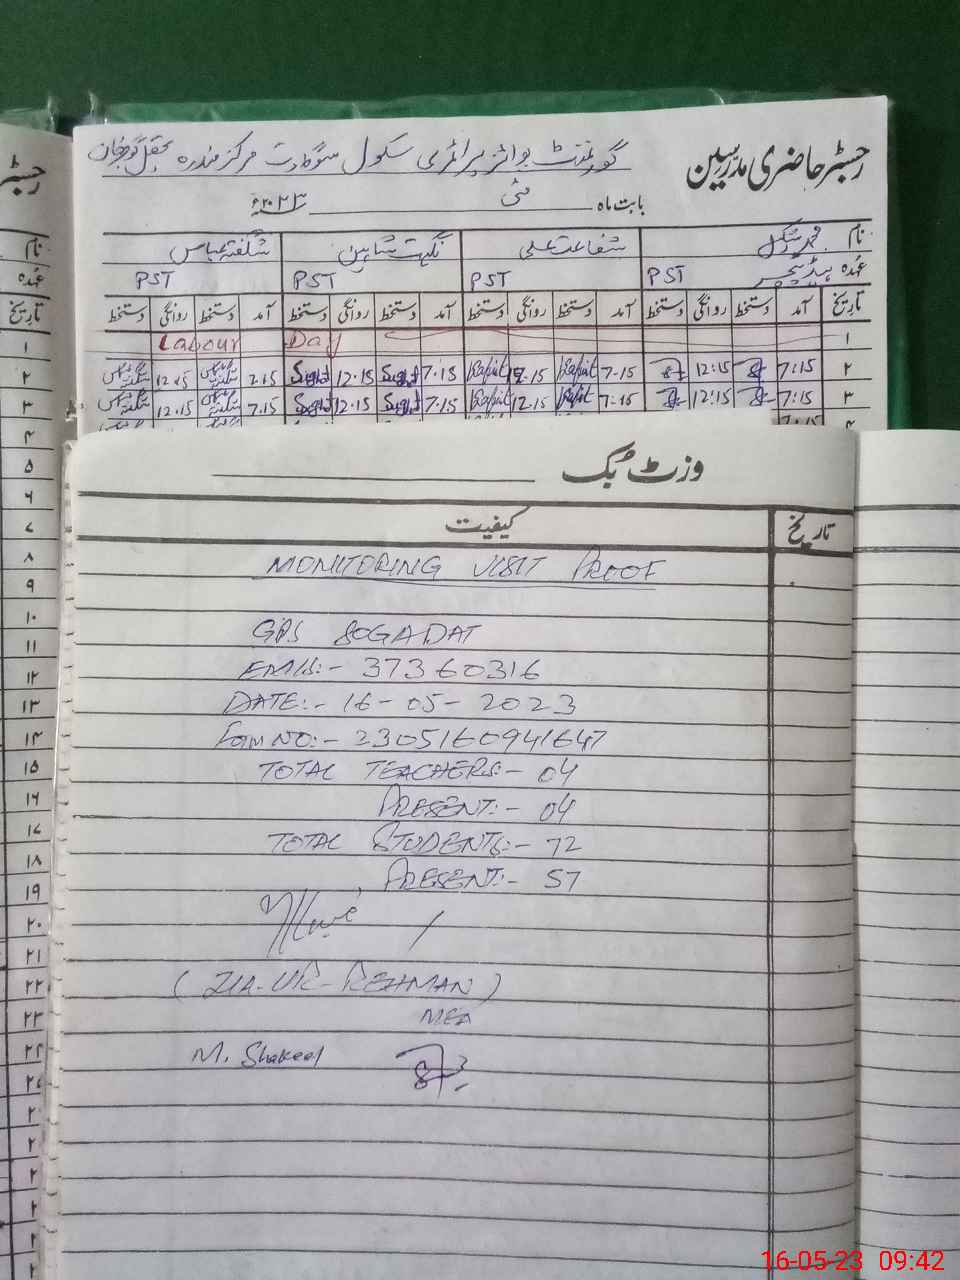 رجسٹر حاضری مدرسین
گورنمنٹ بوائز پرائمری سکول سوگدت مرکز مندرہ تحصیل گوجرخان
بابت ماہ مئی ۲۰۲۳ء
نام محمد شکیل شفاعت علی نگہت شاہین شگفتہ عباس
عہدہ ہیڈ ٹیچر PST PST PST PST
تاریخ آمد دستخط روانگی دستخط آمد دستخط روانگی دستخط آمد دستخط روانگی دستخط آمد دستخط روانگی دستخط
۱ Labour Day
۲ 7:15 12:15 7.15 12.15 7.15 12.15 7.15 12.15
۳ 7:15 12:15 7:15 12.15 7.15 12.15 7.15 12.15
۴
رجسٹر
نام
عہدہ
تاریخ
۱
۲
۳
۴
۵
۶
۷
۸
۹
۱۰
۱۱
۱۲
۱۳
۱۴
۱۵
۱۶
۱۷
۱۸
۱۹
۲۰
۲۱
۲۲
۲۳
۲۴
وزٹ بک
تاریخ کیفیت
MONITORING VISIT PROOF
GPS SOGADAT
EMIS:- 37360316
DATE:- 16-05-2023
Form NO:- 2305160941647
TOTAL TEACHERS:- 04
PRESENT:- 04
TOTAL STUDENTS:- 72
PRESENT:- 57
(ZIA-UR-REHMAN)
MEA
M. Shakeel
16-05-23 09:42